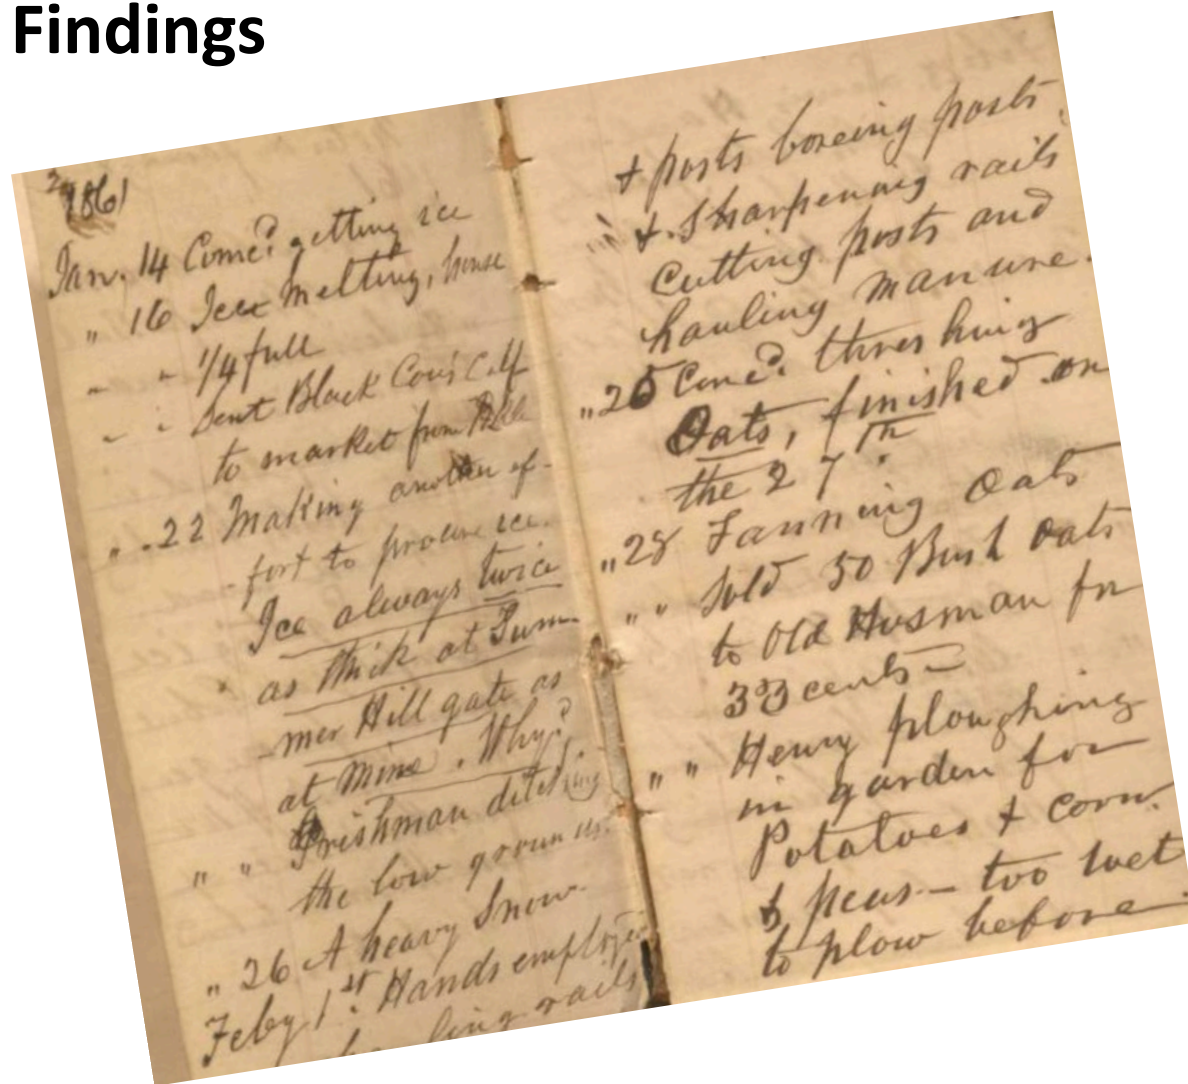 Findings
1861
Jan. 14 Comed. getting ice
" 16 Ice melting, house
" " 1/4 full
" " Sent Black Cow's Calf
to market from
" . 22 Making another ef-
-fort to procure ice.
Ice always twice
as thick at Sum-
-mer Hill gate as
at mine. Why?
" " Irishman ditching
the low grounds.
" 26 A heavy Snow.
Feby 1st. Hands employed
rails
& posts boreing posts
& Sharpening rails
Cutting posts and
hauling manure.
" 25 Comed. threshing
Oats, finished on
the 27th.
" 28 Fanning Oats
" " Sold 50 Bush Oats
to Old Husman for
33 cents—
" " Henry ploughing
in garden for
Potatoes & corn.
& peas — too wet
to plow before